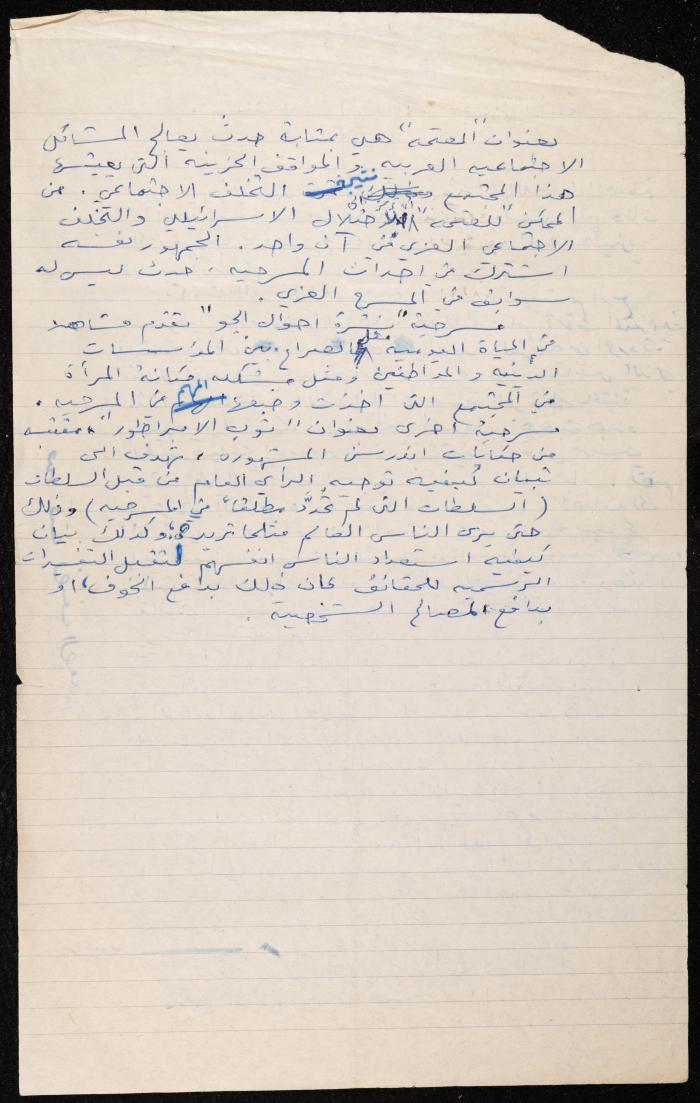 بعنوان "العتمة" هي بمثابة حدث يعالج المشاكل
الاجتماعيه العربيه والمواقف الحزينه التي يعيشها
هذا المجتمع نتيجة التخلف الاجتماعي. من
الممكن "للعتمه" الاحتلال الاسرائيلي والتخلف
الاجتماعي العربي في آن واحد. الجمهور نفسه
اشترك في احداث المسرحيه، حدث ليس له
سوابق في المسرح العربي.
مسرحية "نشرة احوال الجو" تقدم مشاهد
من الحياة اليوميه على الصراع بين المؤسسات
الدينيه والمواطنين ومثل مشكله مكانة المرأة
في المجتمع التي اخذت وضعها المهم في المسرحيه.
مسرحية اخرى بعنوان "ثوب الامبراطور" مقتبسه
من حكايات اندرسن المشهورة، تهدف الى
تبيان كيفيه توجيه الرأي العام من قبل السلطات
(السلطات التي لم تحدَّد مطلقاً في المسرحيه) وذلك
حتى يرى الناس العالم مثلما تريد هي، وكذلك بيان
كيفيه استعداد الناس انفسهم لتقبل التفسيرات
الرسميه للحقائق كان ذلك بدافع الخوف، او
بدافع المصالح الشخصية.